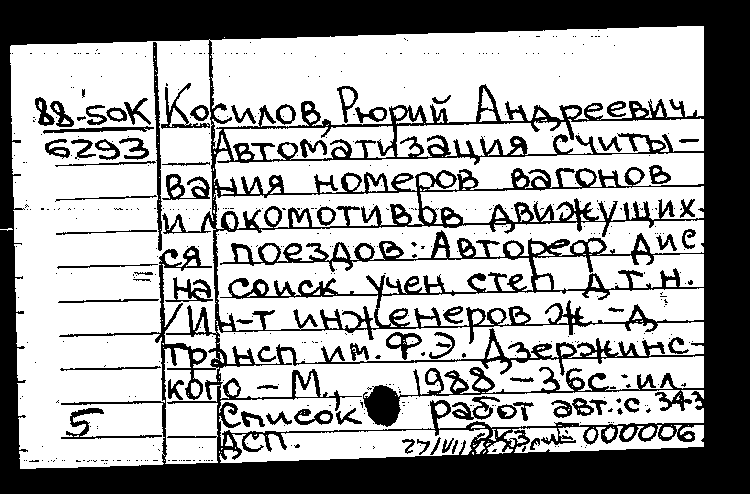 88-50К Косилов, Рюрий Андреевич.
6293 Автоматизация считы-
вания номеров вагонов
и локомотивов движущих-
ся поездов: Автореф. дис.
на соиск. учен. степ. д.т.н.
/Ин-т инженеров ж.-д.
трансп. им. Ф.Э. Дзержинс-
кого. – М., 1988. – 36с.: ил.
5 Список работ авт.: с. 34-3
ДСП. 27/VII 88 экз № 000006.